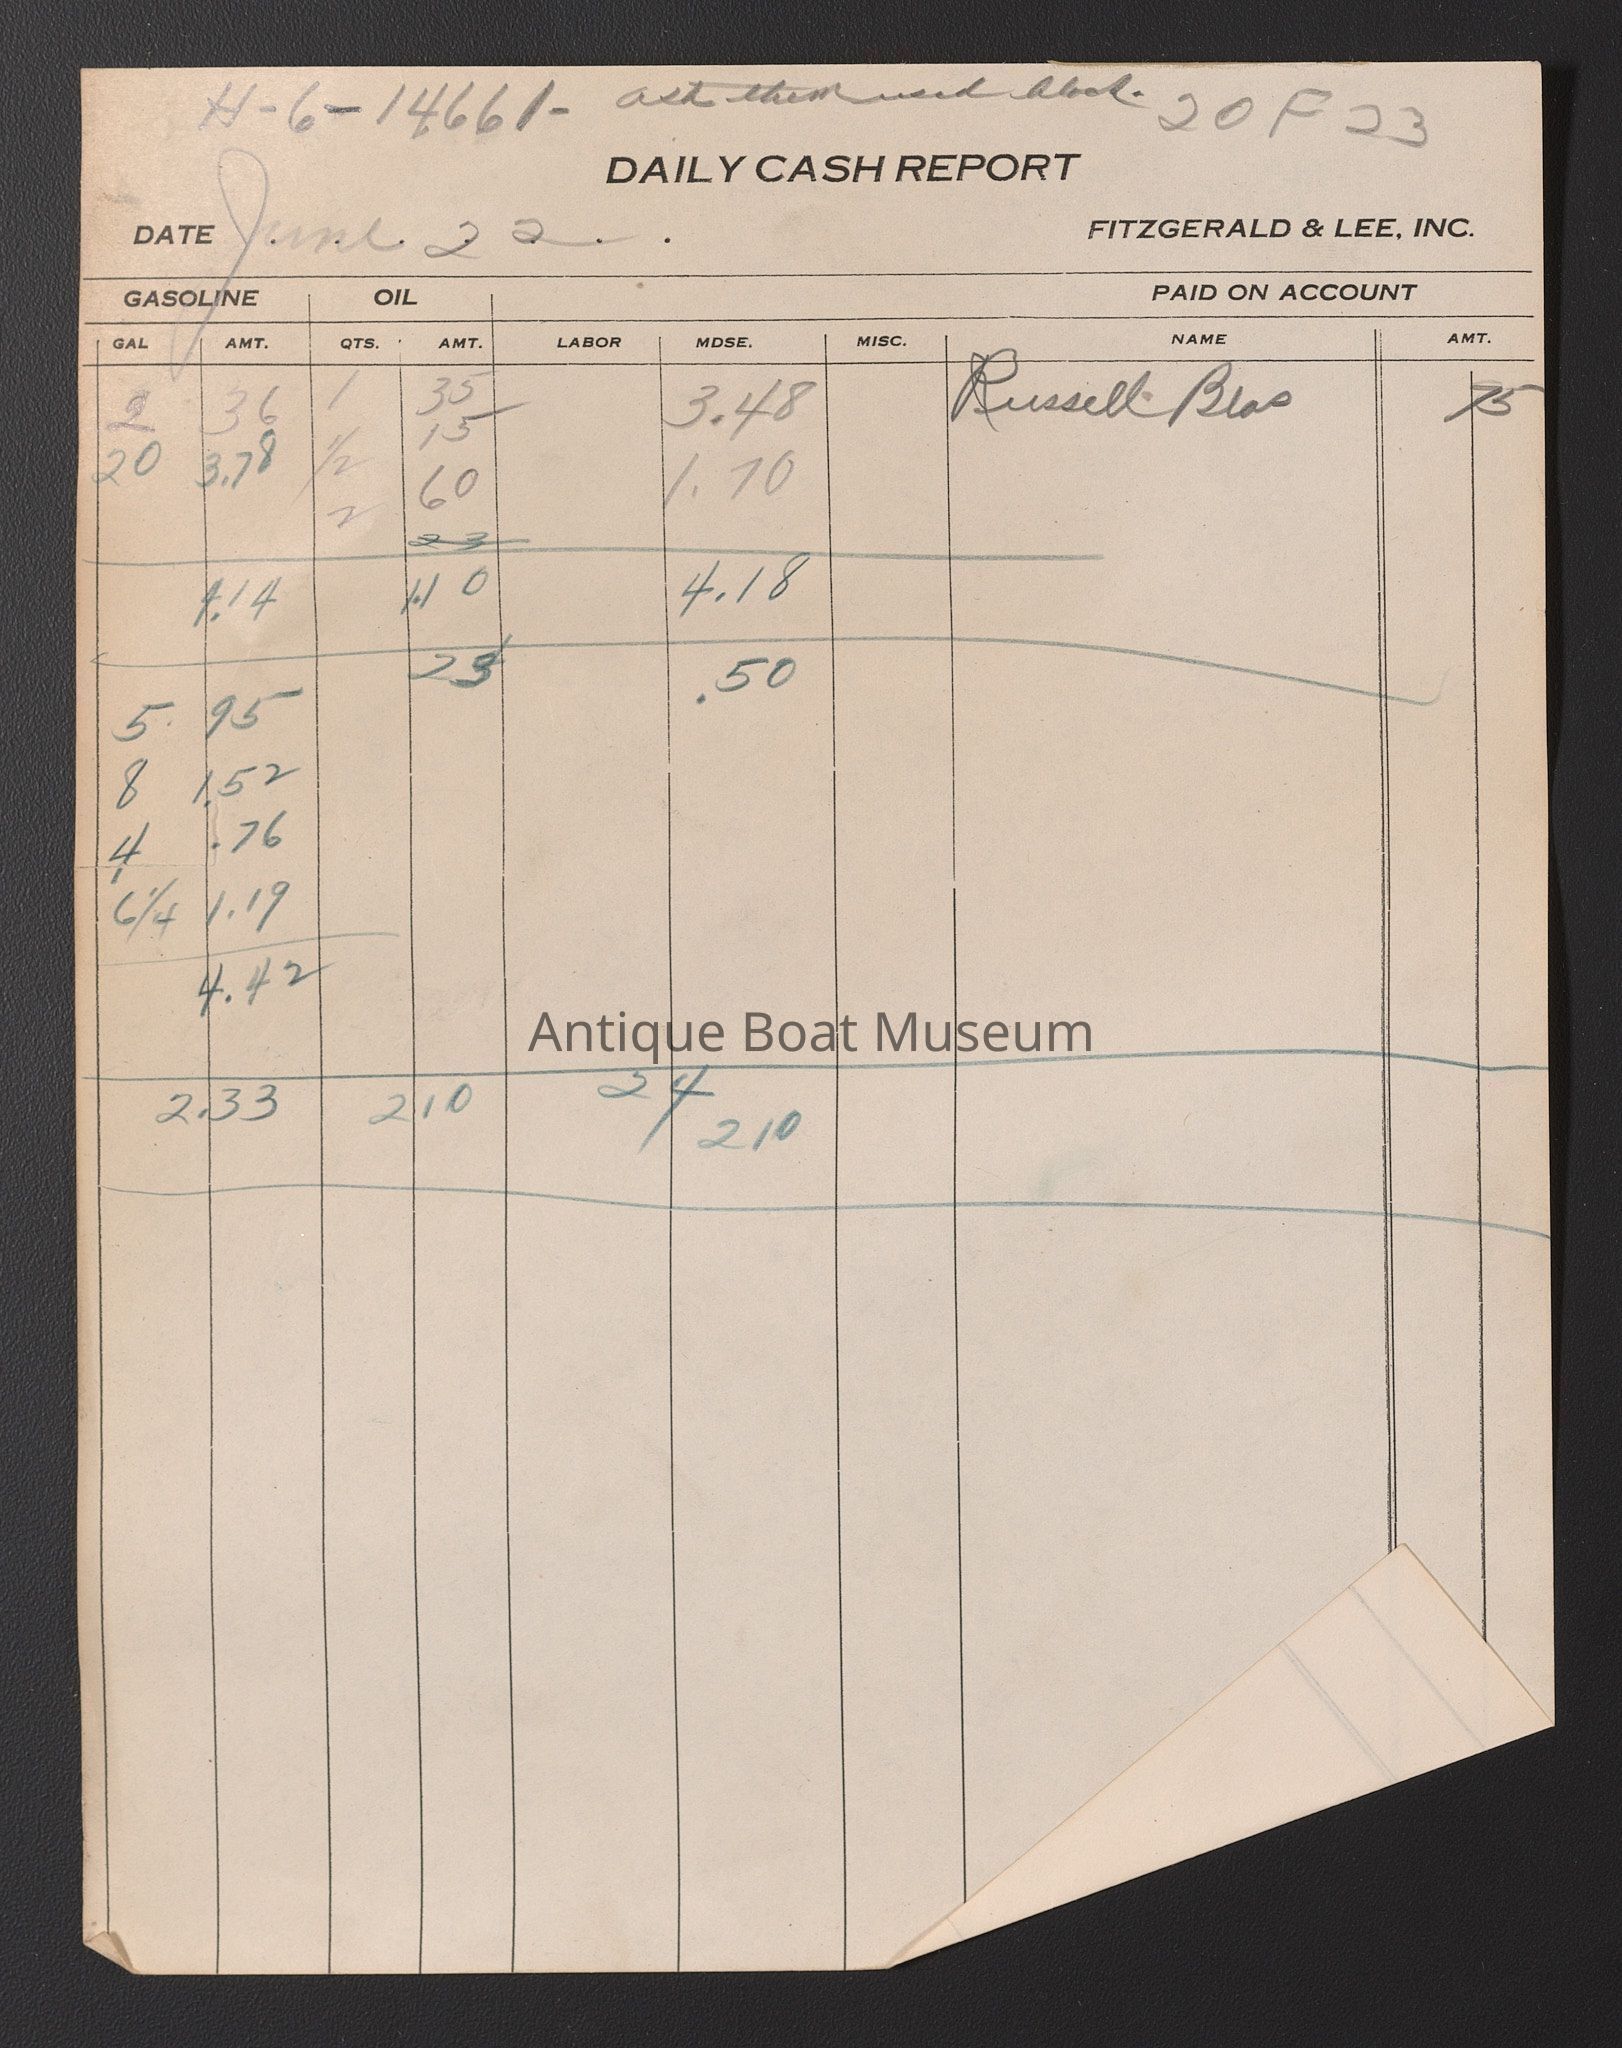 H-6-14661- ask them used block. 20 F 23
DAILY CASH REPORT
DATE June 22 FITZGERALD & LEE, INC.
GASOLINE OIL PAID ON ACCOUNT
GAL AMT. QTS. AMT. LABOR MDSE. MISC. NAME AMT.
2 36 1 35 3.48 Russell Bros 75
20 3.78 1/2 15 1.70
2 60
23
4.14 1.10 4.18
23 .50
5 95
8 1.52
4 .76
6 1/4 1.19
4.42
Antique Boat Museum
2.33 210 24
210